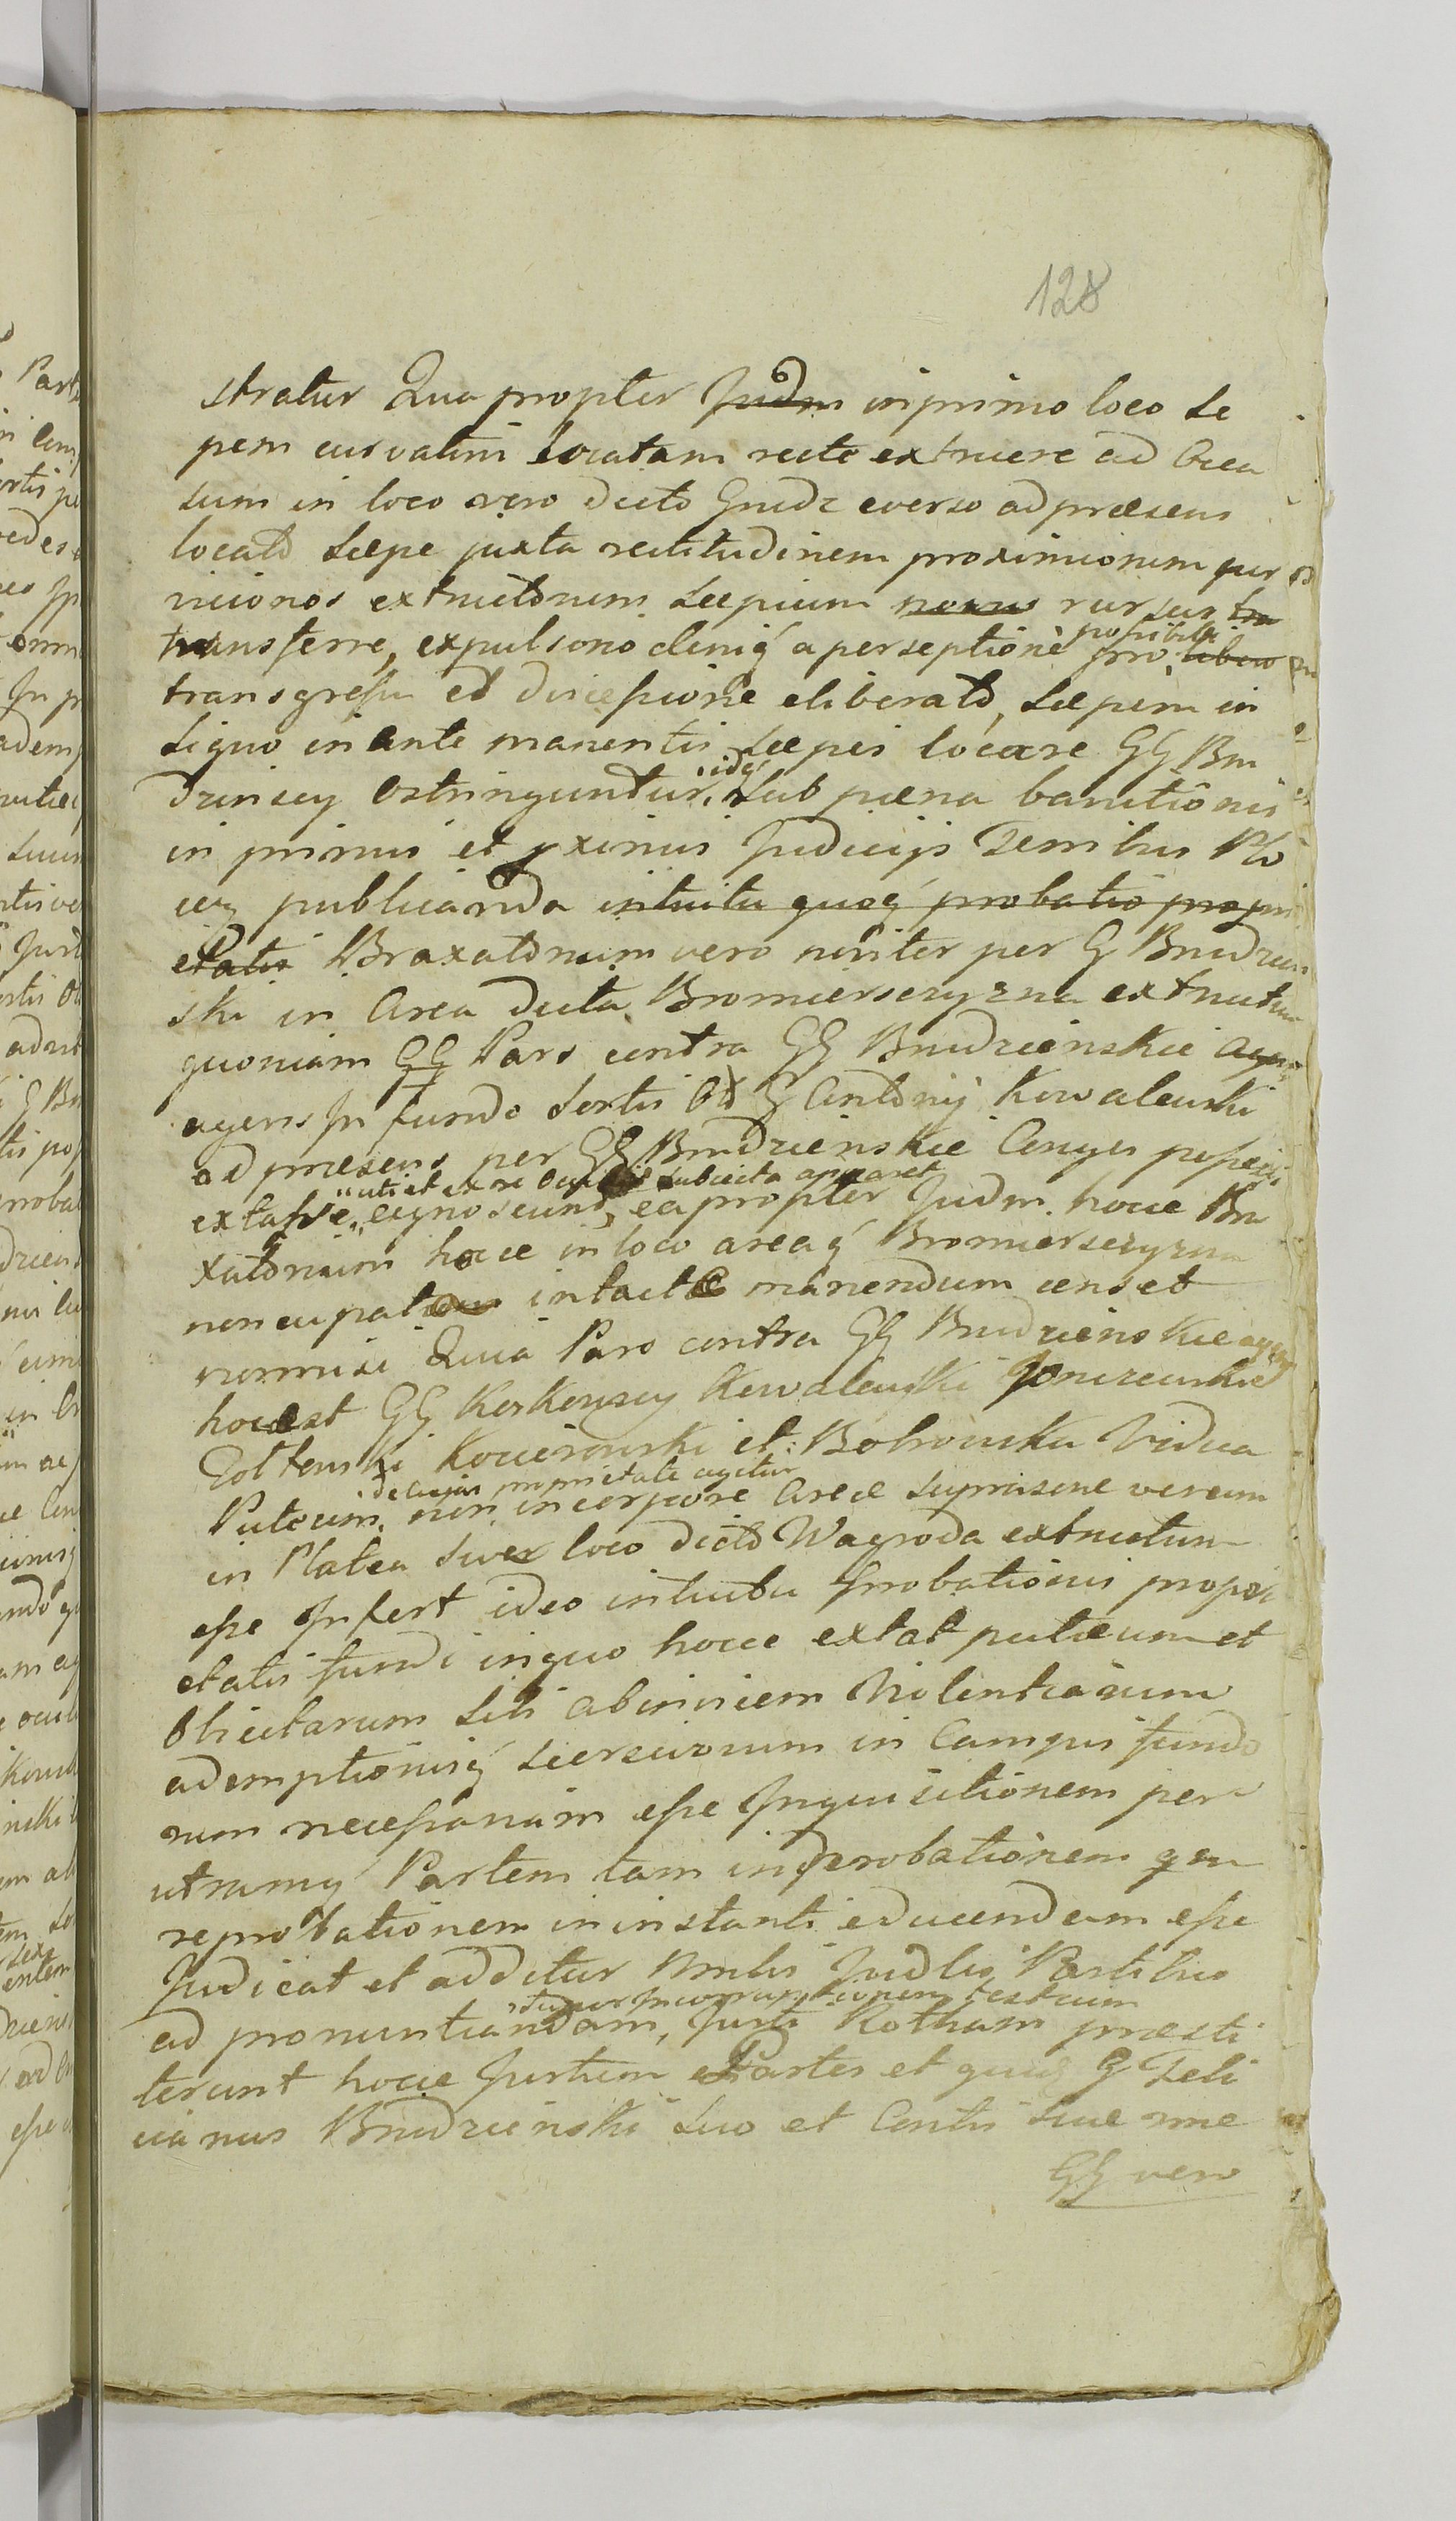 128
stratur Qua propter Judm in primo loco Se
pem curvatim locatam recte extruere ad Occa
sum in loco vero dicto Grudz everso ad præsens
locato Sæpe juxta rectitudinem proximiorum per
vicinos extructorum Sæpium rursus tra
transferre, expulsono deniq a perseptione pro possibili libero
transgressu et discessione eliberato, Sæpem in
Signo in ante manentis Sæpis locare GG Bru
dzinscy Ostringuntur, idq Sub pæna banitionis
in primis et pximis Judicijs Terribus Plo
cen publicanda intuitu quoq probatio propri
etatis Braxatorium vero niviter per G Brudzin
ski in Area dicta Bromierszczyzna extructum
quoniam GG Pars contra GG Brudzienskie
agens In fundo Sortis Ol G Antonij Kowalewski
ad præsens per GG Brudzienskie Conges possessi
uti et ex re subiecta apparet
extasse cognoscund, ea propter Judm hocce Bra
xatorium hocce in loco areaq Bromierszczyzna
noncupato intacte manendum censet
nonnisi Quia Pars contra GG Brudzienskie agens
hocest GG Koskowscy Kowalewski
Goltowski Kocierowski et Botrowska Vidua
de cujus proprietate agitur
Puteum non in corpore Areæ Suprascne verum
in Platea Sive loco dicto Wagroda extructum
esse Infert ideo intuitu Probationis propri
etatis fundi in quo hocce extat puteum et
Obiectarum Sibi abinvicem Violentiarum
ademptionisq in Campis fundo
rum necessariam esse Inquisitionem per
utramq Partem tam in probationem qm
reprobationem in instanti educendam esse
Judicat et additur Mnlis Judlis Partibus
incorruptionem testium
ad pronuntiandam, Jurti Rotham præsti
terunt hocce Jurtum Partes et quid G Feli
cianus Brudzienski Suo et Contis Suæ nne
GG vero